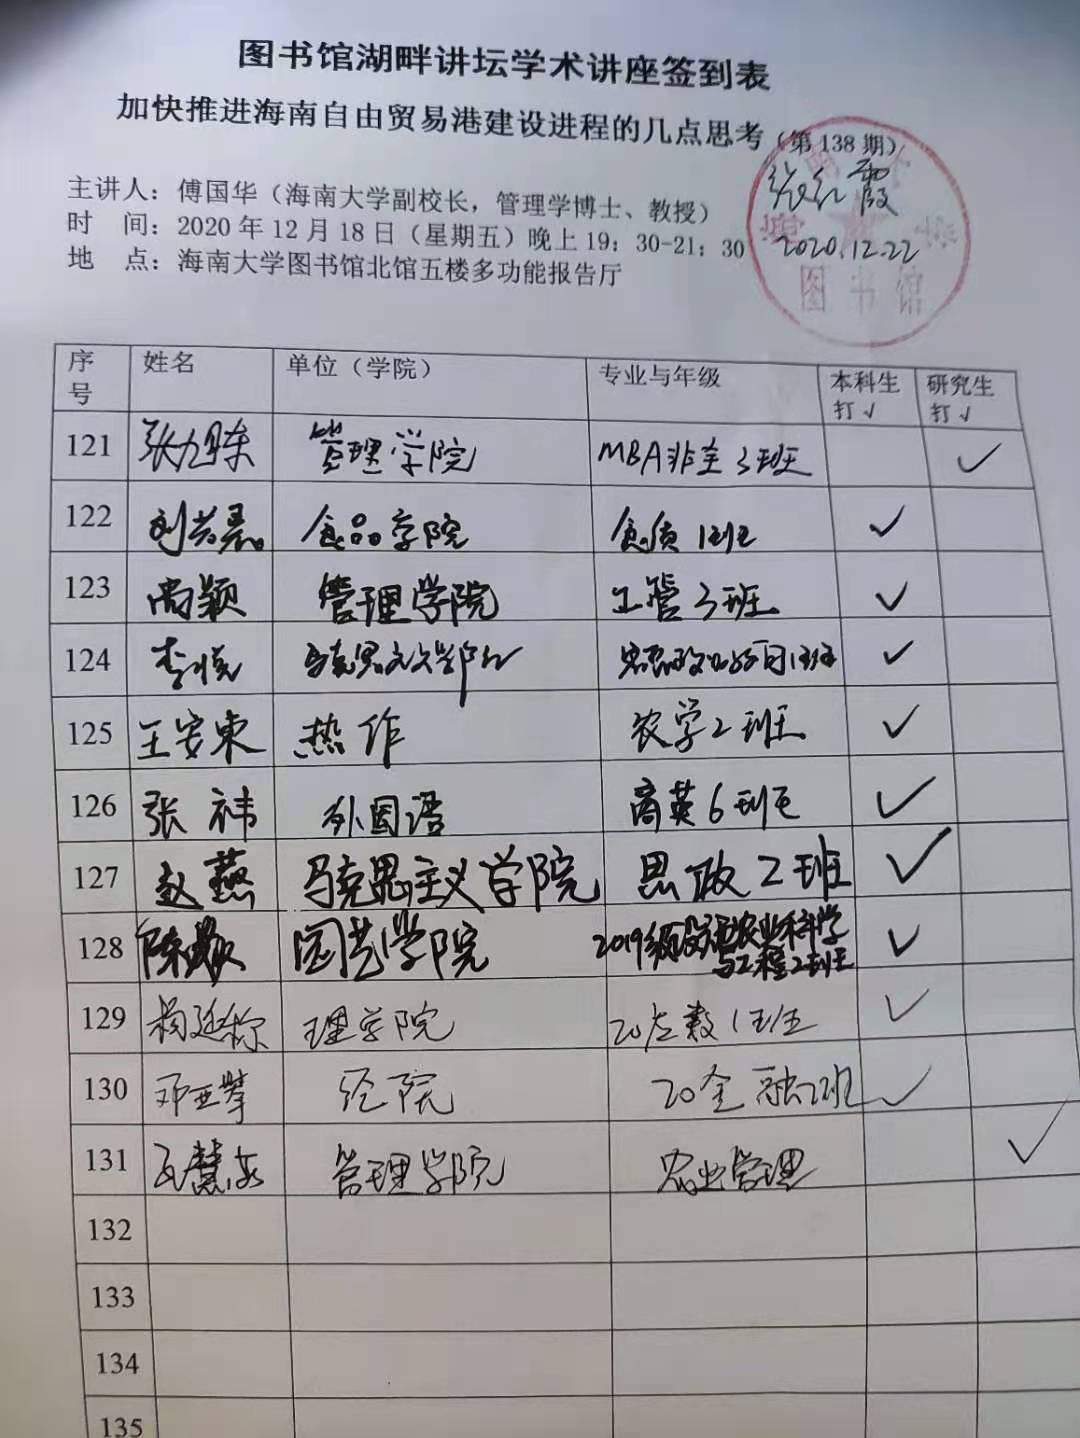 图书馆湖畔讲坛学术讲座签到表
加快推进海南自由贸易港建设进程的几点思考（第138期）
主讲人：傅国华（海南大学副校长，管理学博士、教授）
时 间：2020年12月18日（星期五）晚上19：30-21：30
地 点：海南大学图书馆北馆五楼多功能报告厅
2020.12.22
图书馆
序号 姓名 单位（学院） 专业与年级 本科生打√ 研究生打√
121 张旭东 管理学院 MBA非全3班 ✓
122 食品学院 食质1班 ✓
123 尚颖 管理学院 工管3班 ✓
124 李悦 ✓
125 王安東 热作 农学2班 ✓
126 张祎 外国语 商英6班 ✓
127 赵燕 马克思主义学院 思政2班 ✓
128 园艺学院 2019级设施农业科学与工程2班 ✓
129 理学院 ✓
130 邓亚攀 经院 20金融2班 ✓
131 管理学院 农业管理 ✓
132
133
134
135